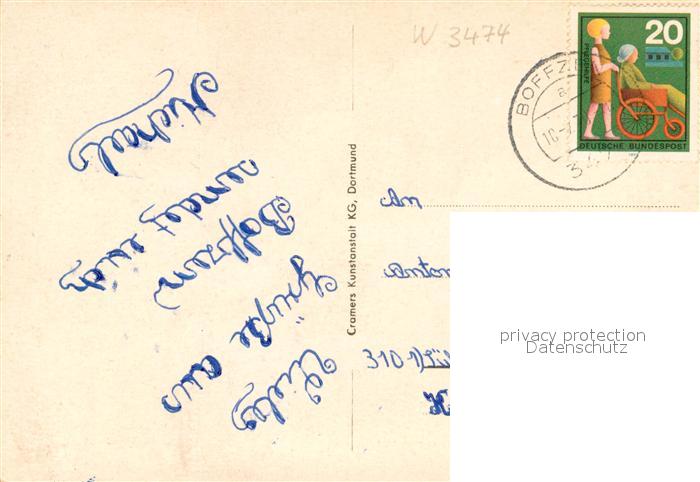 W 3474
BOFFZ
20
PFLEGEHILFE
DEUTSCHE BUNDESPOST
347
Liebe
Grüße aus
Boffzen
sendet euch
Michael
Cramers Kunstanstalt KG, Dortmund
An
Anton
310
privacy protection
Datenschutz